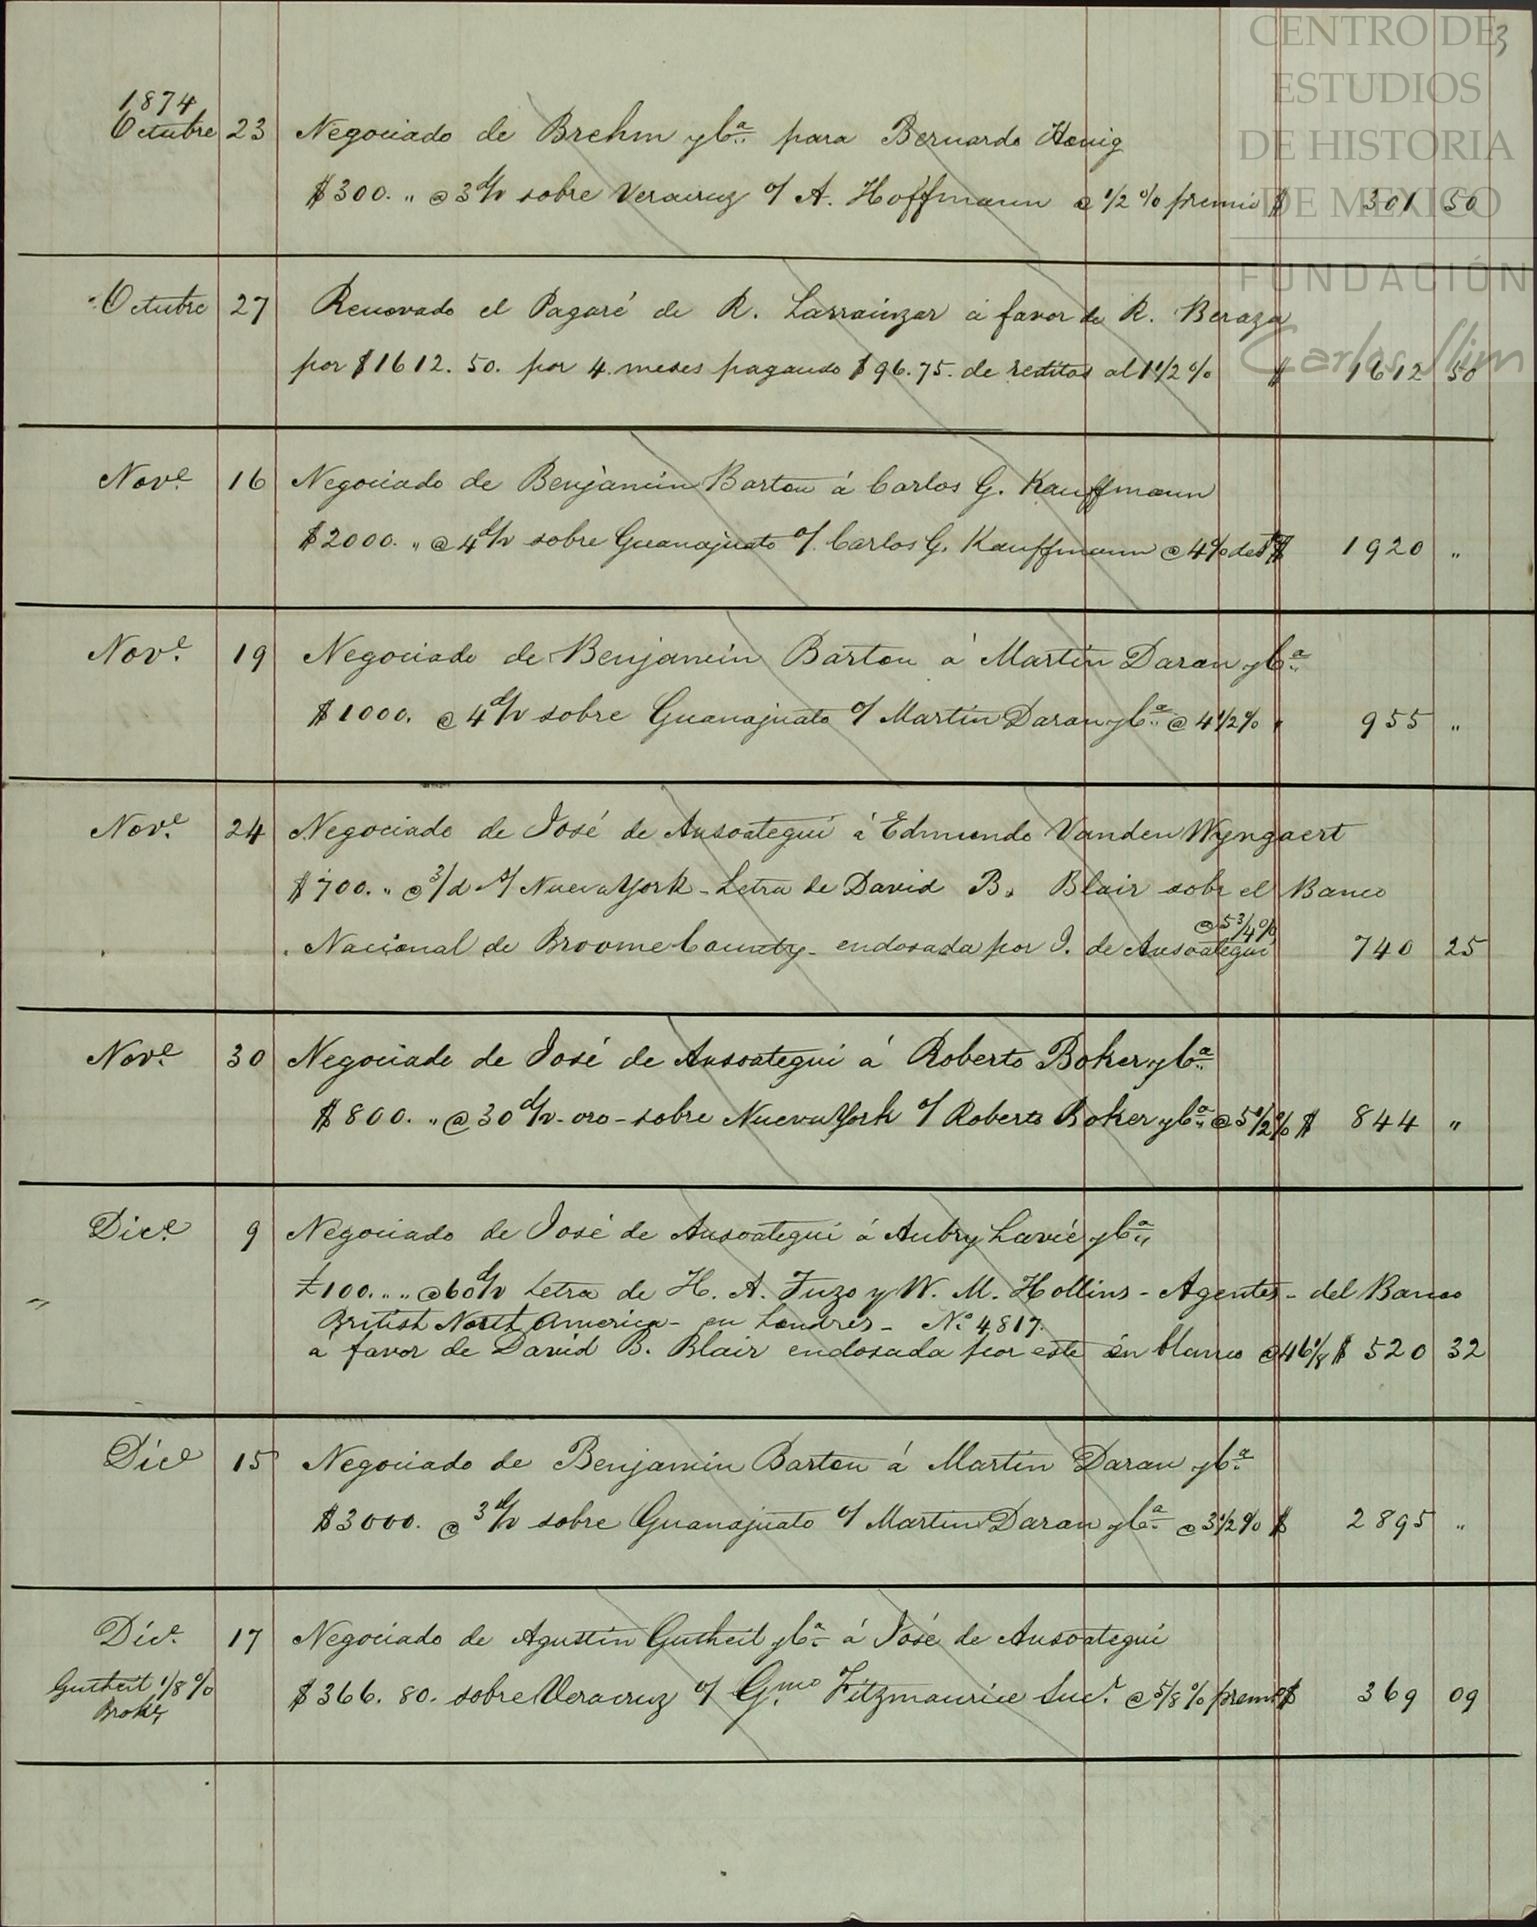 CENTRO DE
ESTUDIOS
DE HISTORIA
DE MEXICO
FUNDACIÓN
Carlos Slim
3
1874
Octubre 23 Negociado de Brehm y Cª para Bernardo Hœnig
$300. „ @ 3 d/v sobre Veracruz o/ A. Hoffmann @ 1/2 % premio $ 301 50
Octubre 27 Renovado el Pagaré de R. Larrainzar á favor de R. Beraza
por $1612. 50. por 4. meses pagando $96. 75. de reditos al 1 1/2 % $ 1612 50
Nov.e 16 Negociado de Benjamin Barton á Carlos G. Kauffmann
$2000. „ @ 4 d/v sobre Guanajuato o/. Carlos G. Kauffmann @ 4% dest $ 1920 „
Nov.e 19 Negociado de Benjamin Barton á Martin Daran y Cª
$1000. @ 4 d/v sobre Guanajuato o/ Martin Daran y Cª @ 4 1/2 % " 955 „
Nov.e 24 Negociado de José de Ansoategui á Edmundo Vanden Wyngaert
$700. „ @ 3/d s/ Nueva York - Letra de David B. Blair sobr el Banco
@ 5 3/4 %
Nacional de Broome County - endosada por J. de Ansoategui 740 25
Nov.e 30 Negociado de José de Ansoategui á Roberto Boker y Cª
$800. „ @ 30 d/v - oro - sobre Nueva York o/ Roberto Boker y Cª @ 5 1/2 % $ 844 „
Dic.e 9 Negociado de José de Ansoategui á Aubry Lavié y Cª
£100. „ „ @ 60 d/v Letra de H. A. Tuzo y W. M. Hollins - Agentes - del Banco
British North America - en Londres - N.o 4,817.
a favor de David B. Blair endosada por este en blanco @ 46 1/8 $ 520 32
Dice 15 Negociado de Benjamin Barton á Martin Daran y Cª
$3000. @ 3 d/v sobre Guanajuato o/ Martin Daran y Cª @ 3 1/2 % $ 2895 „
Dic.e 17 Negociado de Agustin Gutheil y Cª á José de Ansoategui
Gutheil 1/8 %
Brokg
$366. 80. sobre Veracruz o/ G.mo Fitzmaurice Suc.r @ 5/8 % premo $ 369 09